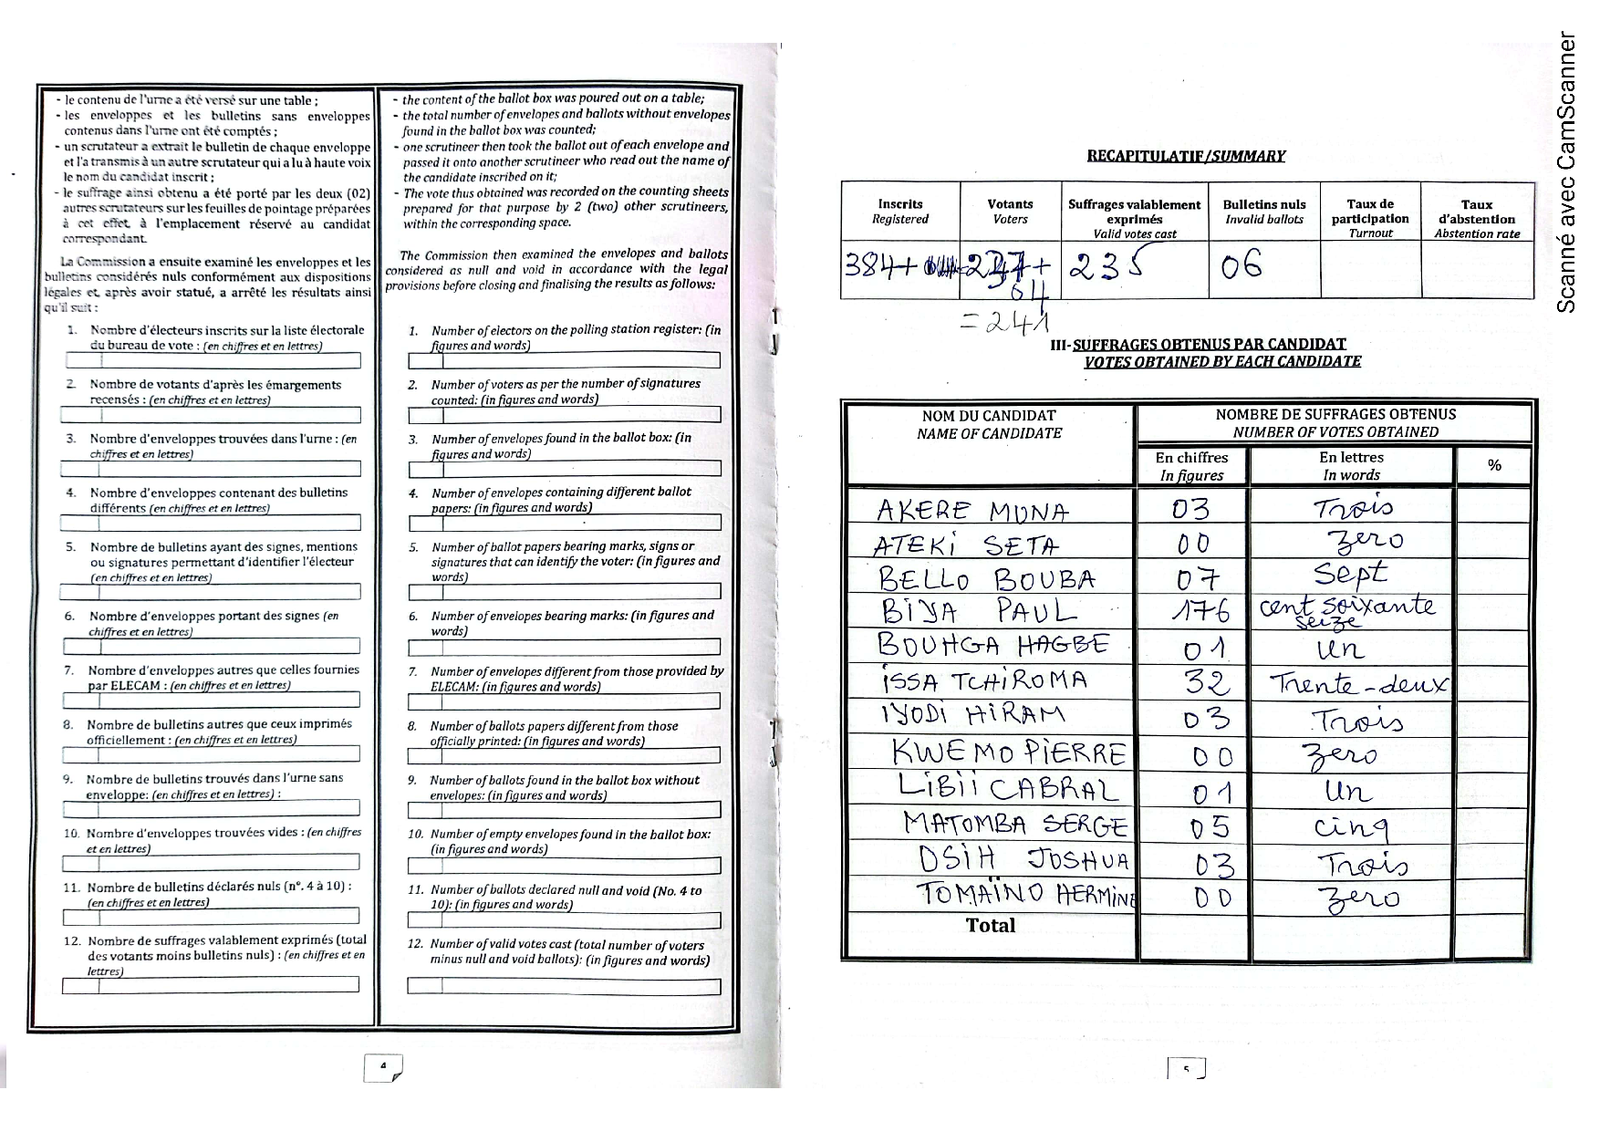 - le contenu de l'urne a été versé sur une table ;
- les enveloppes et les bulletins sans enveloppes
contenus dans l'urne ont été comptés ;
- un scrutateur a extrait le bulletin de chaque enveloppe
et l'a transmis à un autre scrutateur qui a lu à haute voix
le nom du candidat inscrit ;
- le suffrage ainsi obtenu a été porté par les deux (02)
autres scrutateurs sur les feuilles de pointage préparées
à cet effet, à l'emplacement réservé au candidat
correspondant.
La Commission a ensuite examiné les enveloppes et les
bulletins considérés nuls conformément aux dispositions
légales et, après avoir statué, a arrêté les résultats ainsi
qu'il suit :
1. Nombre d'électeurs inscrits sur la liste électorale
du bureau de vote : (en chiffres et en lettres)
2. Nombre de votants d'après les émargements
recensés : (en chiffres et en lettres)
3. Nombre d'enveloppes trouvées dans l'urne : (en
chiffres et en lettres)
4. Nombre d'enveloppes contenant des bulletins
différents (en chiffres et en lettres)
5. Nombre de bulletins ayant des signes, mentions
ou signatures permettant d'identifier l'électeur
(en chiffres et en lettres)
6. Nombre d'enveloppes portant des signes (en
chiffres et en lettres)
7. Nombre d'enveloppes autres que celles fournies
par ELECAM : (en chiffres et en lettres)
8. Nombre de bulletins autres que ceux imprimés
officiellement : (en chiffres et en lettres)
9. Nombre de bulletins trouvés dans l'urne sans
enveloppe: (en chiffres et en lettres) :
10. Nombre d'enveloppes trouvées vides : (en chiffres
et en lettres)
11. Nombre de bulletins déclarés nuls (n°. 4 à 10) :
(en chiffres et en lettres)
12. Nombre de suffrages valablement exprimés (total
des votants moins bulletins nuls) : (en chiffres et en
lettres)
- the content of the ballot box was poured out on a table;
- the total number of envelopes and ballots without envelopes
found in the ballot box was counted;
- one scrutineer then took the ballot out of each envelope and
passed it onto another scrutineer who read out the name of
the candidate inscribed on it;
- The vote thus obtained was recorded on the counting sheets
prepared for that purpose by 2 (two) other scrutineers,
within the corresponding space.
The Commission then examined the envelopes and ballots
considered as null and void in accordance with the legal
provisions before closing and finalising the results as follows:
1. Number of electors on the polling station register: (in
figures and words)
2. Number of voters as per the number of signatures
counted: (in figures and words)
3. Number of envelopes found in the ballot box: (in
figures and words)
4. Number of envelopes containing different ballot
papers: (in figures and words)
5. Number of ballot papers bearing marks, signs or
signatures that can identify the voter: (in figures and
words)
6. Number of envelopes bearing marks: (in figures and
words)
7. Number of envelopes different from those provided by
ELECAM: (in figures and words)
8. Number of ballots papers different from those
officially printed: (in figures and words)
9. Number of ballots found in the ballot box without
envelopes: (in figures and words)
10. Number of empty envelopes found in the ballot box:
(in figures and words)
11. Number of ballots declared null and void (No. 4 to
10): (in figures and words)
12. Number of valid votes cast (total number of voters
minus null and void ballots): (in figures and words)
4
RECAPITULATIF/SUMMARY
Inscrits Votants Suffrages valablement Bulletins nuls Taux de Taux
Registered Voters exprimés Invalid ballots participation d'abstention
Valid votes cast Turnout Abstention rate
384+ + 235 06
64
=241
III-SUFFRAGES OBTENUS PAR CANDIDAT
VOTES OBTAINED BY EACH CANDIDATE
NOM DU CANDIDAT NOMBRE DE SUFFRAGES OBTENUS
NAME OF CANDIDATE NUMBER OF VOTES OBTAINED
En chiffres En lettres %
In figures In words
AKERE MUNA 03 Trois
ATEKI SETA 00 zero
BELLO BOUBA 07 Sept
BIYA PAUL 176 cent soixante
seize
BOUHGA HAGBE 01 un
ISSA TCHIROMA 32 Trente-deux
IYODI HIRAM 03 Trois
KWEMO PIERRE 00 zero
LIBII CABRAL 01 un
MATOMBA SERGE 05 cinq
OSIH JOSHUA 03 Trois
TOMAÏNO HERMINE 00 zero
Total
5
Scanné avec CamScanner